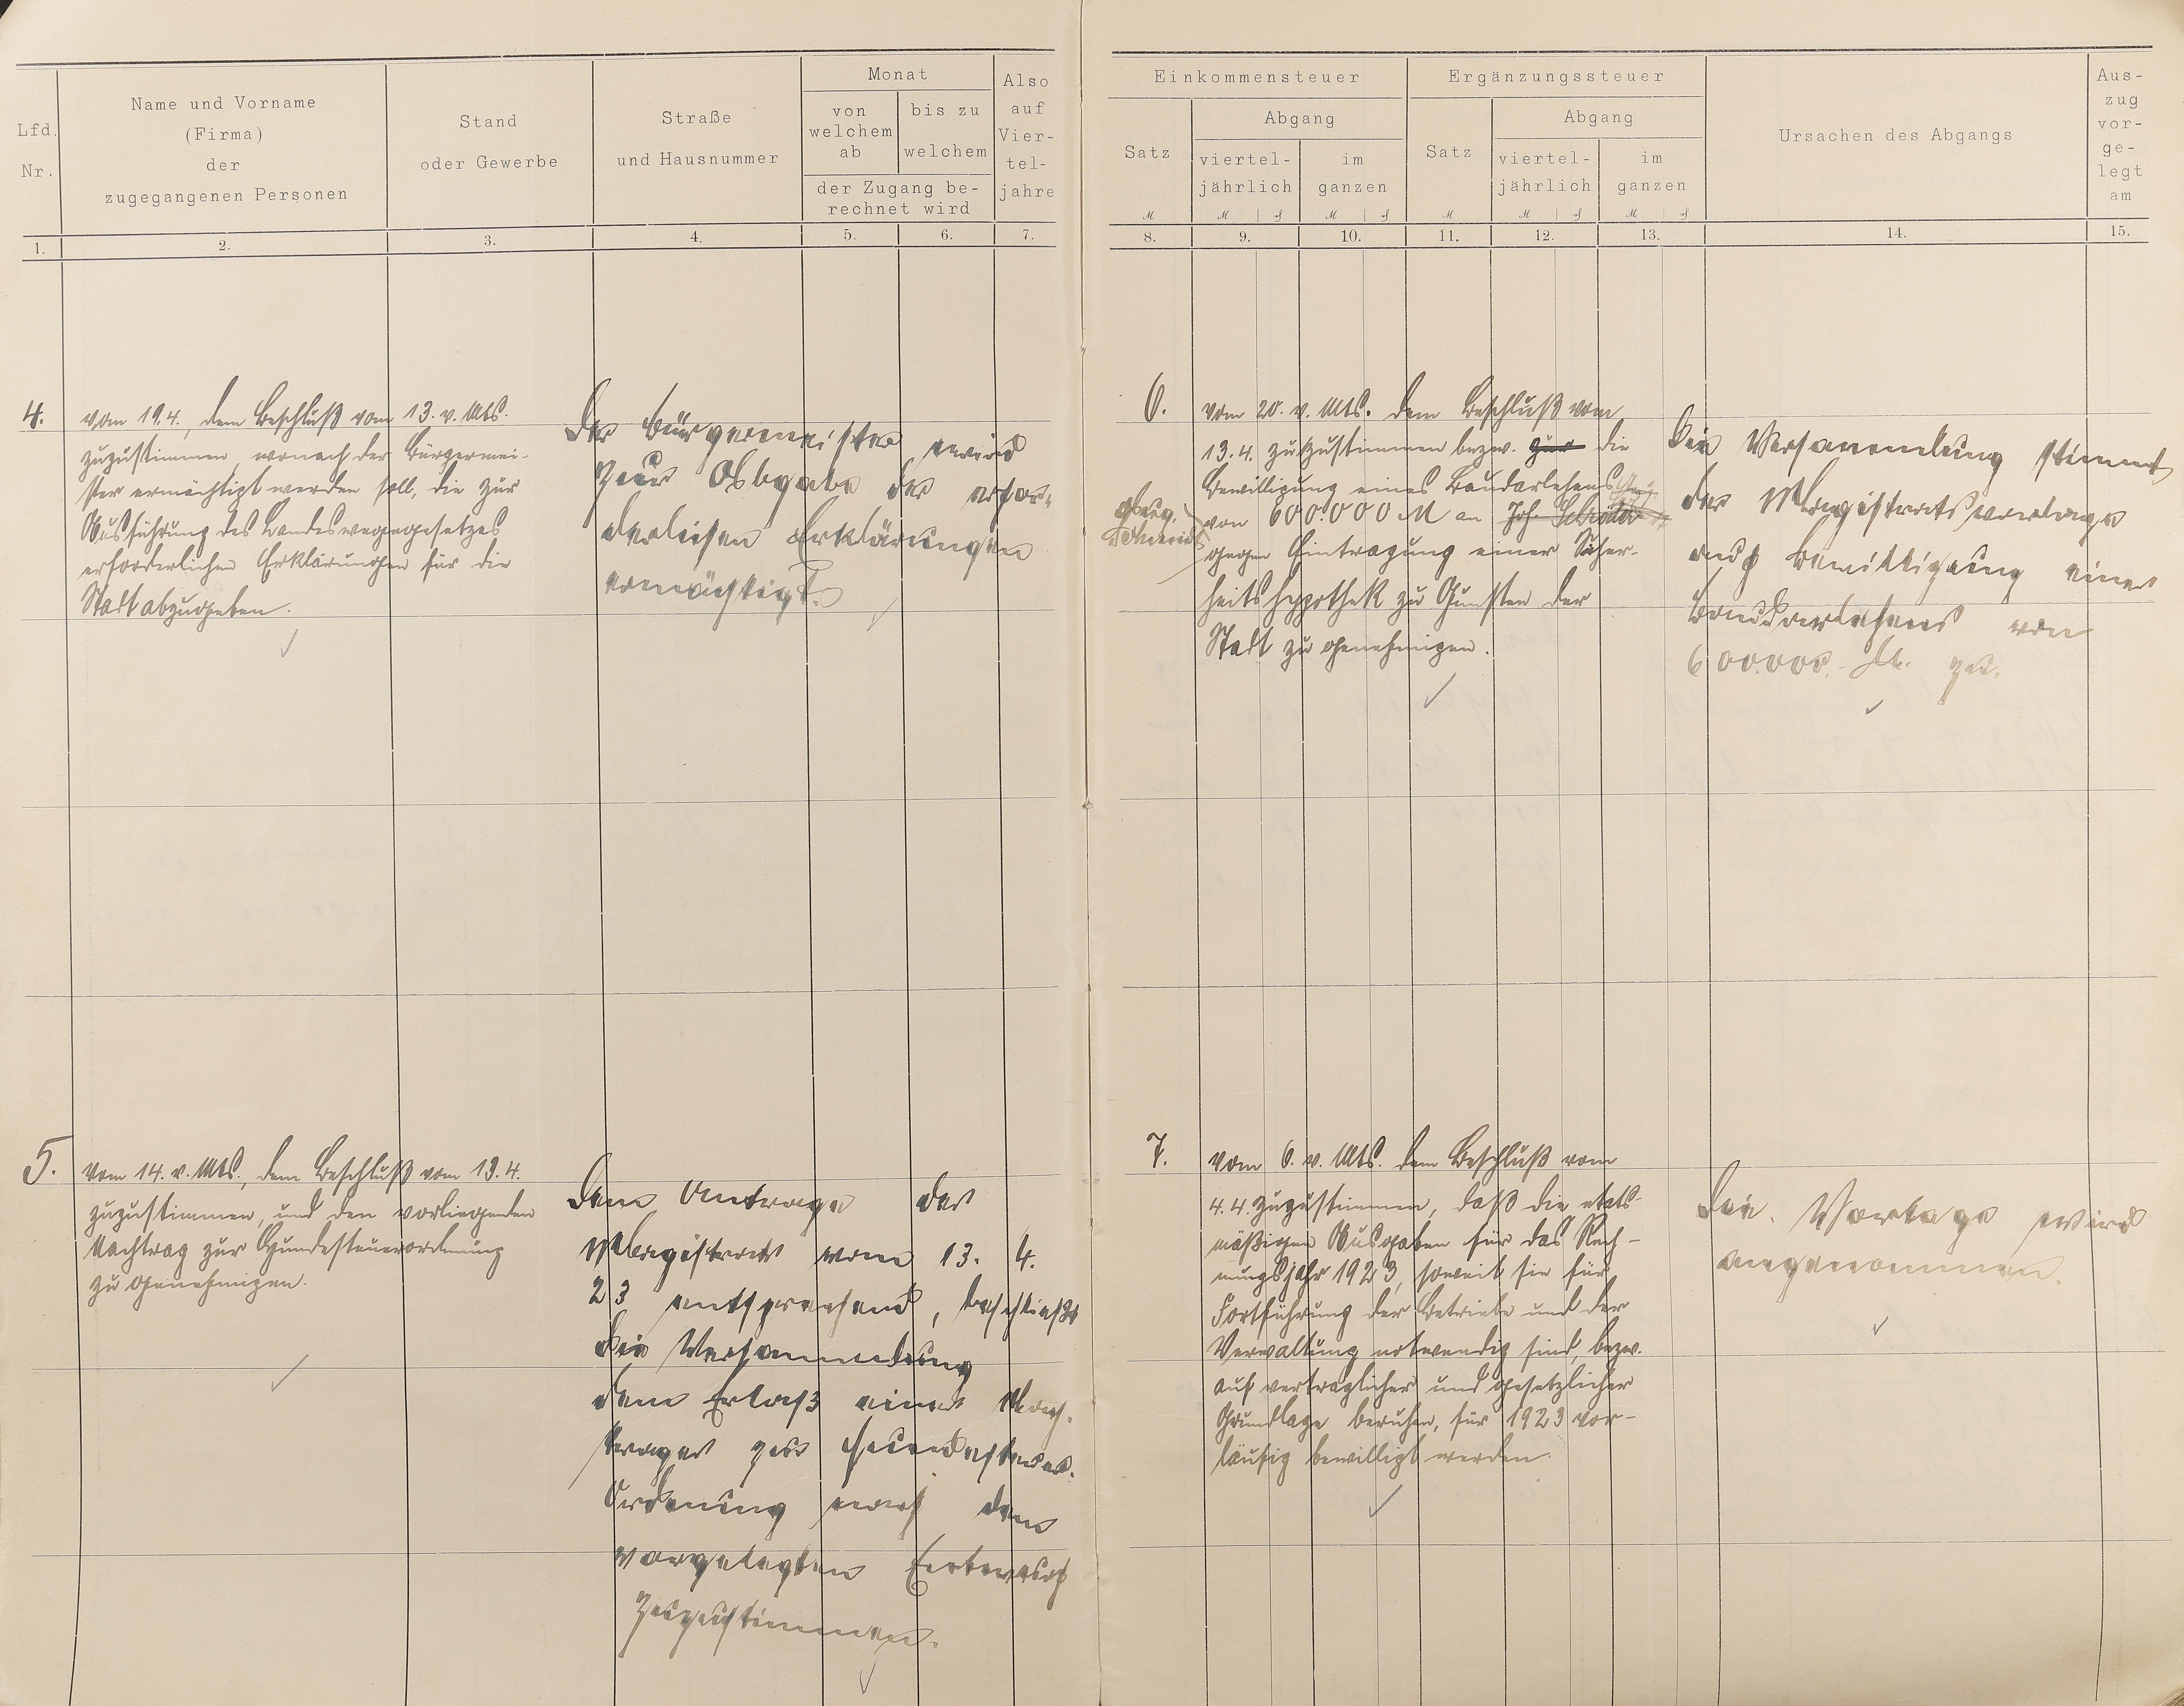 Lfd. Nr.
Name und Vorname
(Firma)
der
zugegangenen Personen
Stand
oder Gewerbe
Straße
und Hausnummer
Monat
von
welchem
ab
bis zu
welchem
der Zugang be-
rechnet wird
Also
auf
Vier-
tel-
jahre
1. 2. 3. 4. 5. 6. 7.
4.
vom 19.4., dem Beschluß vom 13. v. Mts.
zuzustimmen, wonach der Bürgermei-
ster ermächtigt werden soll, die zur
Ausführung des Landeswegegesetzes
erforderlichen Erklärungen für die
Stadt abzugeben.
Der Bürgermeister wird
zur Abgabe der erfor-
derlichen Erklärungen
ermächtigt.
5.
vom 14. v. Mts., dem Beschluß vom 13.4.
zuzustimmen, und den vorliegenden
Nachtrag zur Hundesteuerordnung
zu genehmigen.
Dem Antrage des
Magistrats vom 13. 4.
23 entsprechend, beschließt
die Versammlung
dem Erlaß eines Nach-
trages zur Hundesteuer-
Ordnung nach dem
vorgelegten Entwurf
zuzustimmen.
Einkommensteuer
Satz
Abgang
viertel-
jährlich
im
ganzen
M M ₰ M ₰
Ergänzungssteuer
Satz
Abgang
viertel-
jährlich
im
ganzen
M M ₰ M ₰
Ursachen des Abgangs
Aus-
zug
vor-
ge-
legt
am
8. 9. 10. 11. 12. 13. 14. 15.
6.
vom 20. v. Mts. dem Beschluß vom
13.4. zuzustimmen bezw. zur die
Bewilligung eines Baudarlehens
von 600.000 M an Joh. Schröder
gegen Eintragung einer Sicher-
heitshypothek zu Gunsten der
Stadt zu genehmigen.
Die Versammlung stimmt
der Magistratsvorlage
auf Bewilligung eines
Baudarlehens von
600.000.- M. zu.
7.
vom 6. v. Mts. dem Beschluß vom
4.4. zuzustimmen, daß die etats-
mäßigen Ausgaben für das Rech-
nungsjahr 1923, soweit sie für
Fortführung der Betriebe und der
Verwaltung notwendig sind, bezw.
auf vertraglicher und gesetzlicher
Grundlage beruhen, für 1923 vor-
läufig bewilligt werden.
Die Vorlage wird
angenommen.